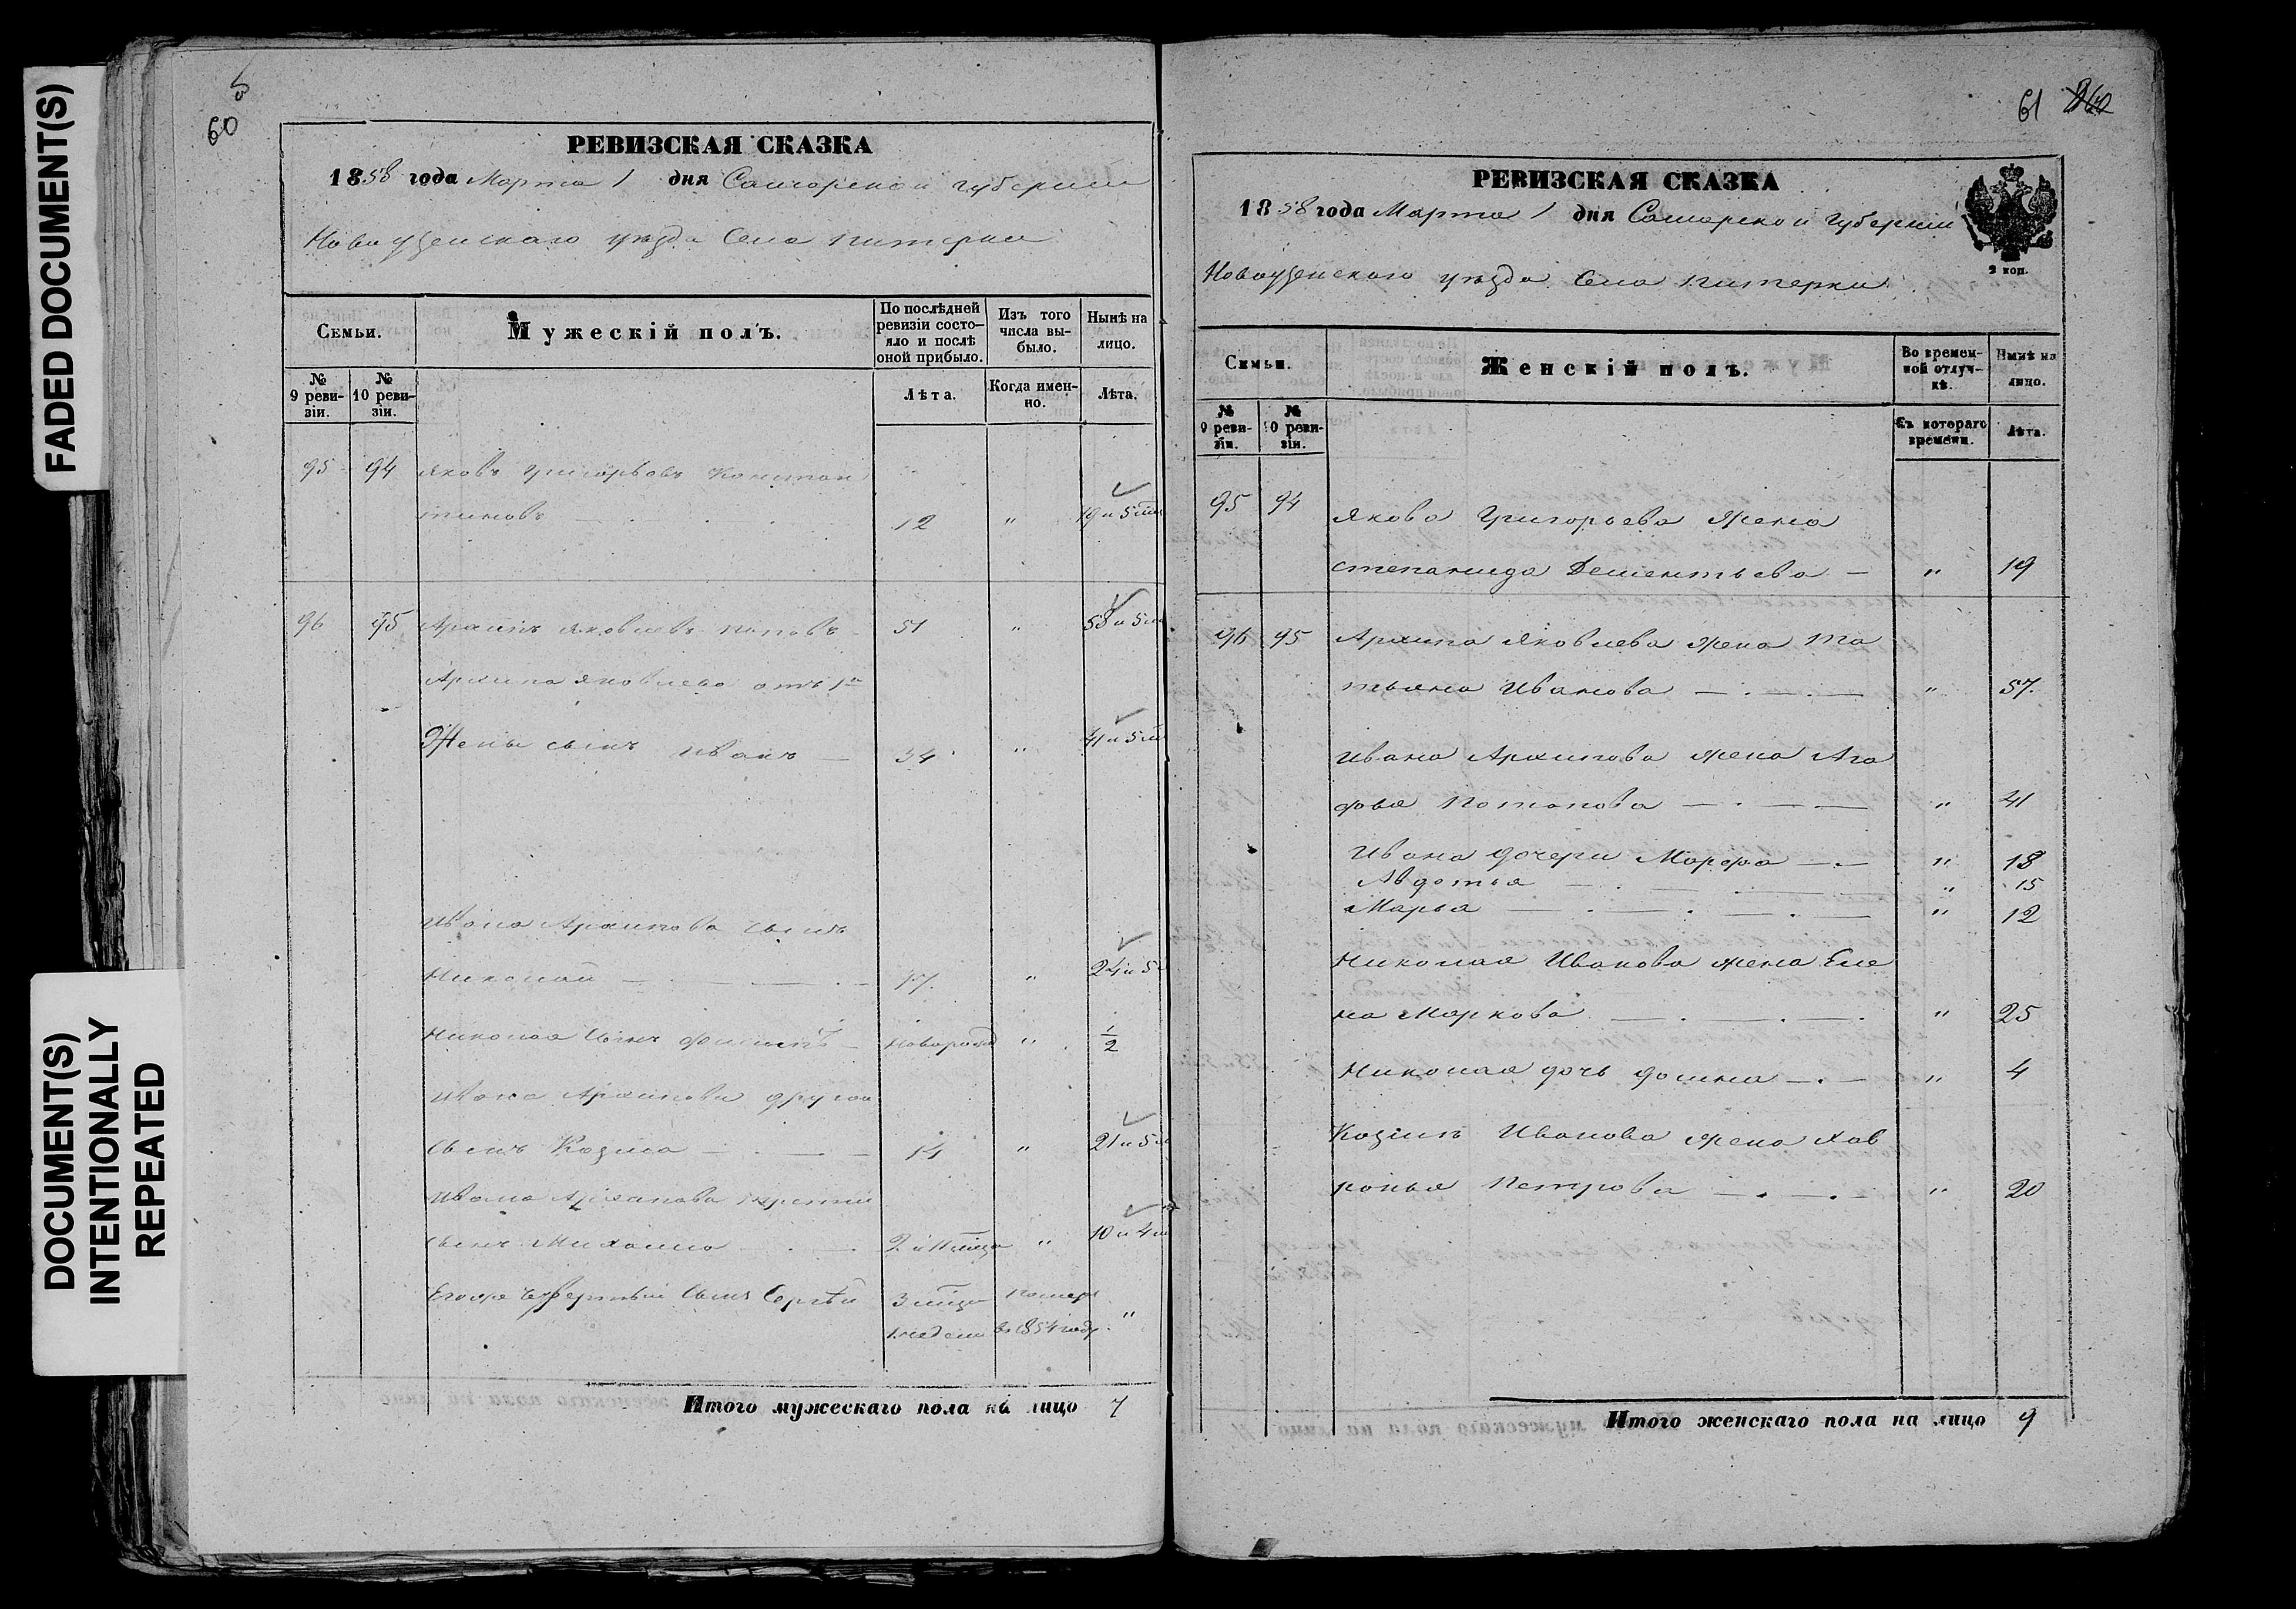 FADED DOCUMENT(S)
DOCUMENT(S)
INTENTIONALLY
REPEATED
60
РЕВИЗСКАЯ СКАЗКА
1858 года Марта 1 дня Самарской губернии
Новоузенскаго уѣзда Села Питерки
Семьи.
Мужескій полъ.
По послѣдней ревизіи состояло и послѣ оной прибыло.
Изъ того числа выбыло.
Нынѣ на лицо.
№ 9 ревизіи.
№ 10 ревизіи.
Лѣта.
Когда именно.
Лѣта.
95 94 Яковъ Григорьевъ Констан
тиновъ 12 " 19 и 5 м
96 95 Архипъ Яковлевъ Поповъ 51 " 58 и 5 м
Архипа Яковлева отъ 1й
Жены сынъ Иванъ — 34 " 41 и 5 м
Ивана Архипова сынъ
Николай — 17 " 24 и 5
Николая сынъ Филипъ — новорожд " 1/2
Ивана Архипова другой
сынъ Козма — 14 " 21 и 5 м
Ивана Архипова третий
сынъ Михаила — 2 и 11 мѣца " 10 и 4 м
Егоже четвертый сынъ Сергѣй 3 мѣца помер
1 недели въ 1854 году "
Итого мужескаго пола на лицо 7
61
РЕВИЗСКАЯ СКАЗКА
1858 года Марта 1 дня Самарской Губерніи
2 коп.
Новоузенскаго уѣзда Села Питерки
Семьи.
Женскій полъ.
Во временной отлучкѣ.
Нынѣ на лицо.
№ 9 ревизіи.
№ 10 ревизіи.
Съ котораго времени.
Лѣта.
95 94 Якова Григорьева жена
Степанида Дементьева — " 19
96 95 Архипа Яковлева жена Та
тьяна Иванова — " 57
Ивана Архипова жена Ага
фья Потапова — " 41
Ивана дочери Марфа — " 18
Авдотья — " 15
Марья — " 12
Николая Иванова жена Еле
на Маркова — " 25
Николая дочь Домна — " 4
Козмы Иванова жена Хав
ронья Петрова — " 20
Итого женскаго пола на лицо 9